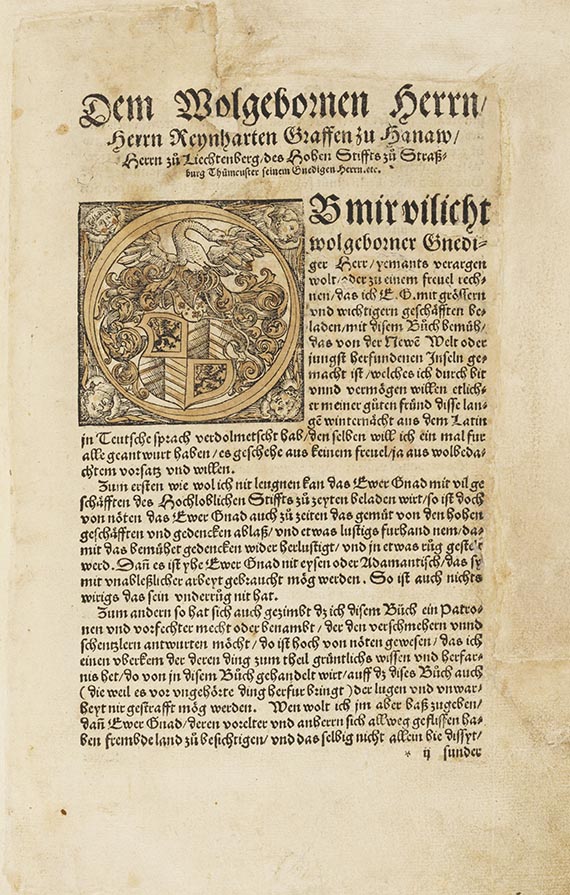 Dem Wolgebornen Herrn/
Herrn Reynharten Graffen zu Hanaw/
Herrn zů Liechtenberg/des Hohen Stiffts zů Straß-
burg Thůmeuster seinem Gnedigen Herrn.etc.
B mir vilicht
wolgeborner Gnedi-
ger Herr/yemants verargen
wolt/oder zu einem freuel rech-
nen/das ich E.G.mit grössern
vnd wichtigern geschäfften be-
laden/mit disem Bůch bemüh/
das von der Newē Welt oder
jungst herfundenen Inseln ge-
macht ist/welches ich durch bit
vnnd vermögen willen etlich-
er meiner gůten fründ disse lan-
gē winternächt aus dem Latin
jn Teutsche sprach verdolmetscht hab/den selben will ich ein mal fur
alle geantwurt haben/es geschehe aus keinem freuel/ja aus wolbeda-
chtem vorsatz vnd willen.
Zum ersten wie wol ich nit lengnen kan das Ewer Gnad mit vil ge
schäfften des Hochloblichen Stiffts zů zeyten beladen wirt/so ist doch
von nöten das Ewer Gnad auch zů zeiten das gemůt von den hohen
geschäfften vnd gedencken ablaß/vnd etwas lustigs furhand nem/da-
mit das bemühet gedencken wider herlustigt/vnd jn etwas růg gestelt
werd. Dañ es ist yhe Ewer Gnad nit eysen oder Adamantisch/das sy
mit vnableßlicher arbeyt gebraucht mög werden. So ist auch nichts
wirigs das sein vnderrůg nit hat.
Zum andern so hat sich auch gezimbt dz ich disem Bůch ein Patro-
nen vnd vorfechter mecht oder benambt/der den verschmehern vnnd
schentzlern antwurten möcht/do ist hoch von nöten gewesen/das ich
einen vberkem der deren ding zum theil grüntlichs wissen vnd herfar-
nis het/do von jn disem Bůch gehandelt wirt/auff dz dises Bůch auch
(die weil es vor vngehörte ding herfur bringt)der lugen vnd vnwar-
heyt nit gestrafft mög werden. Wen wolt ich jm aber baß zugeben/
dañ Ewer Gnad/deren vorelter vnd anherrn sich allweg geflissen ha-
ben frembde land zů besichtigen/vnd das selbig nicht allein hie dissyt/
* ij sunder